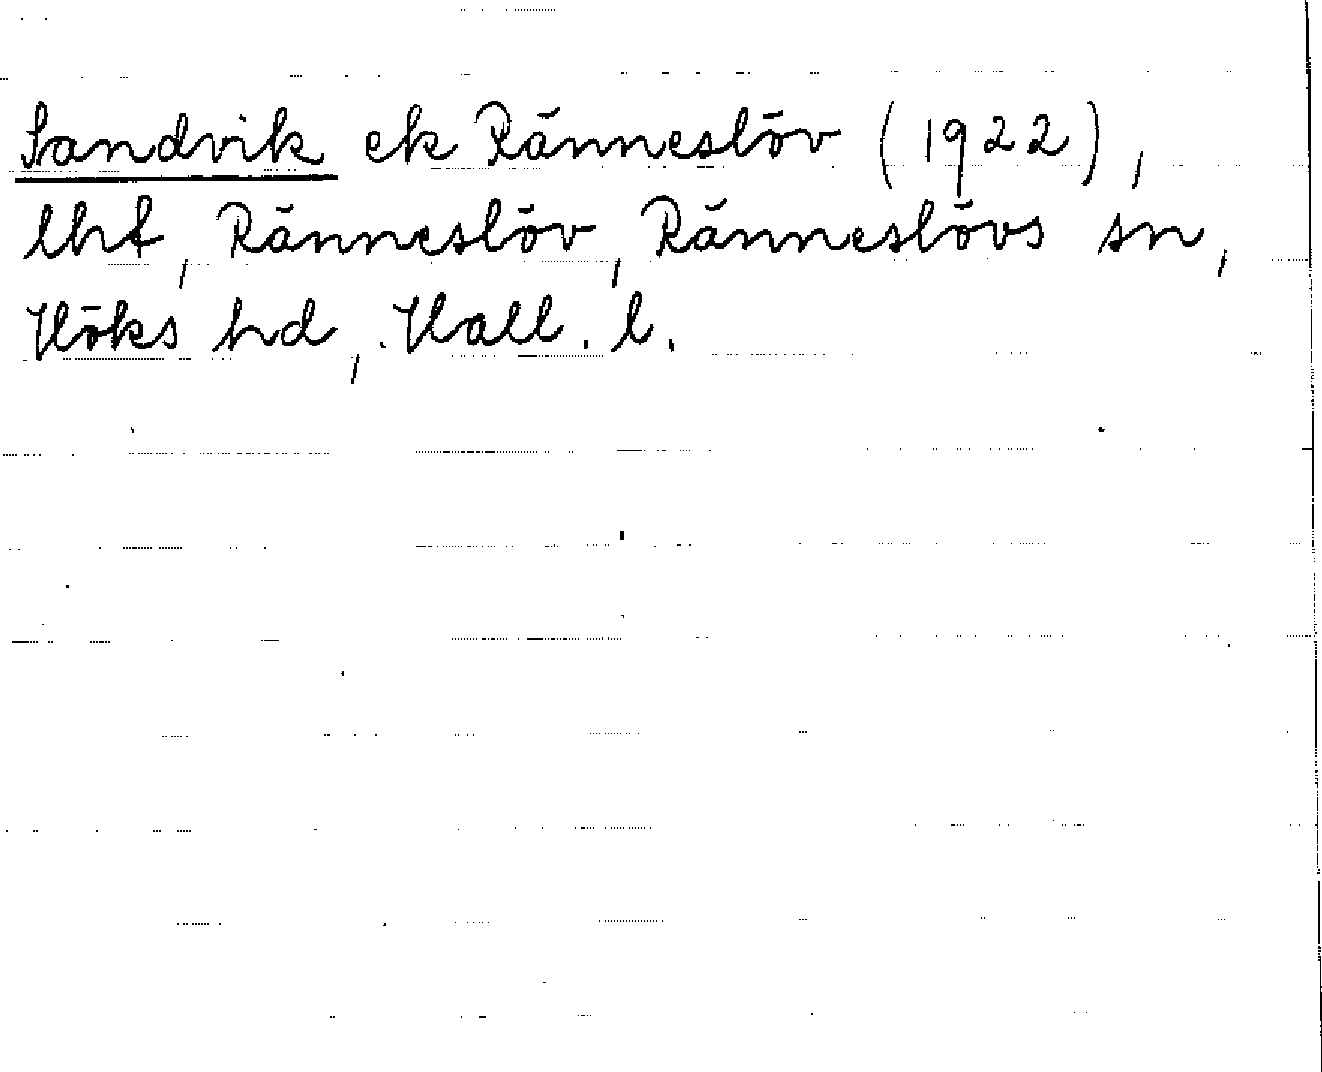 Sandvik ek Ränneslöv (1922),
lht, Ränneslöv, Ränneslövs sn,
Höks hd, Hall. l.